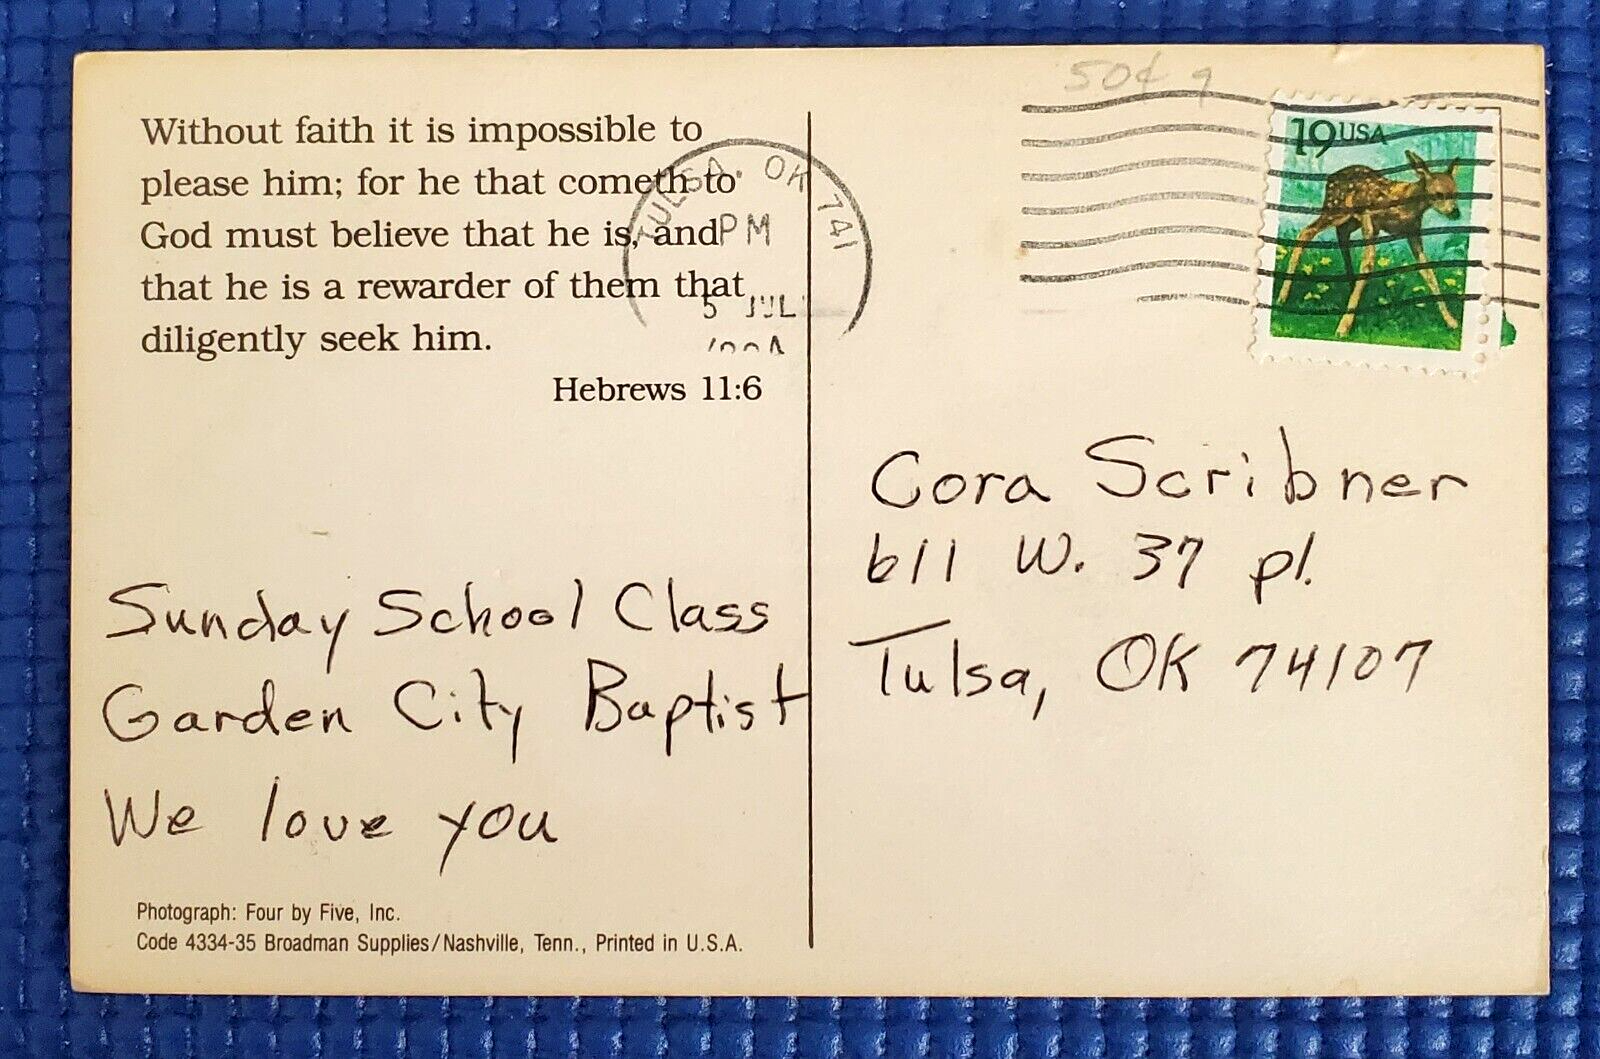 Without faith it is impossible to
please him; for he that cometh to
God must believe that he is, and
that he is a rewarder of them that
diligently seek him.
Hebrews 11:6
TULSA, OK 741
PM
5 JUL
50¢
19USA
Cora Scribner
611 W. 37 pl.
Tulsa, OK 74107
Sunday School Class
Garden City Baptist
We love you
Photograph: Four by Five, Inc.
Code 4334-35 Broadman Supplies/Nashville, Tenn., Printed in U.S.A.